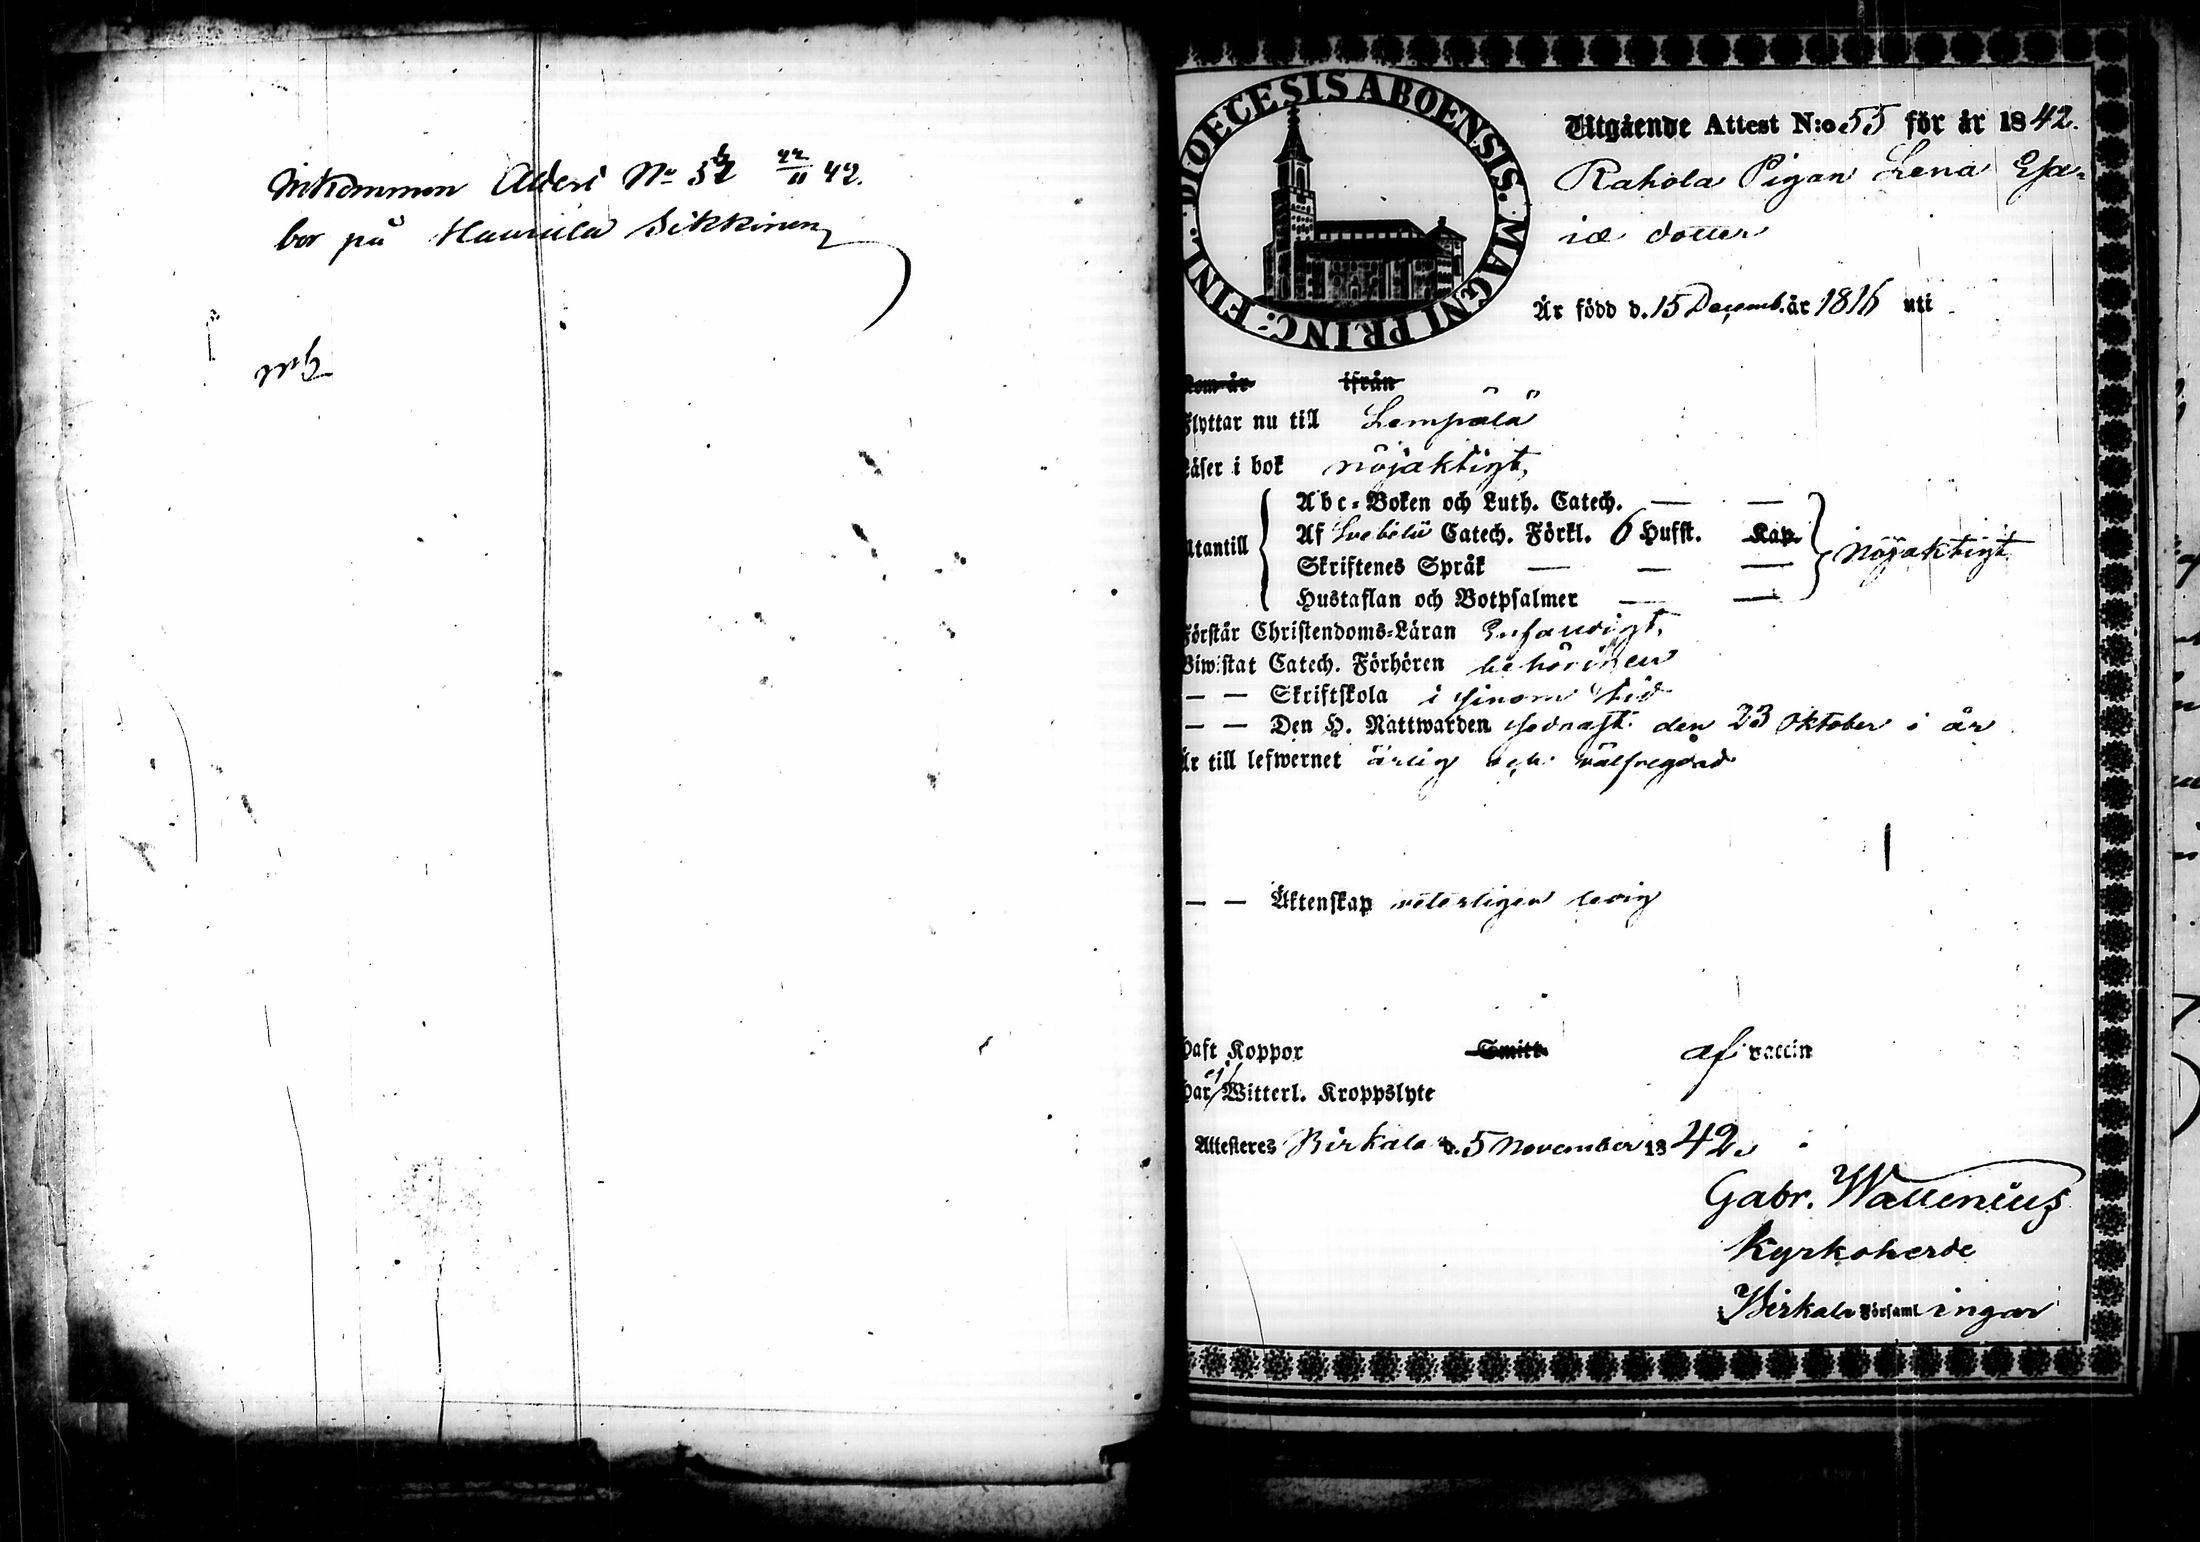 Inkommen Attest No 52 22/11 42.
bor på Haurala Sikkinen
DIOECESIS ABOENSIS. MAGNI PRINC: FINL.
Utgående Attest N:o 55 för år 1842.
Rahola Pigan Lena Esa-
iæ dotter
Är född d. 15 Decemb. år 1816 uti
kom år ifrån
Flyttar nu till Lempälä
Läser i bok nöjaktigt,
Abc-Boken och Luth. Catech. — —
Utantill Af Svebelii Catech. Förkl. 6 Hufst. Kap. nöjaktigt
Skriftenes Språk — — —
Hustaflan och Botpsalmer — —
Förstår Christendoms-Läran enfaldigt,
Biwistat Catech. Förhören behörigen
— — Skriftskola i sinom tid
— — Den H. Nattwarden sednast den 23 Oktober i år
Är till lefwernet ärlig och välfregdad
— — Äktenskap veterligen ledig
Haft Koppor Smitt. af vaccin
Har ej Witterl. Kroppslyte
Attesteres Birkala d. 5 November 1842.
Gabr. Wallenius
Kyrkoherde
i Birkala Församlingar